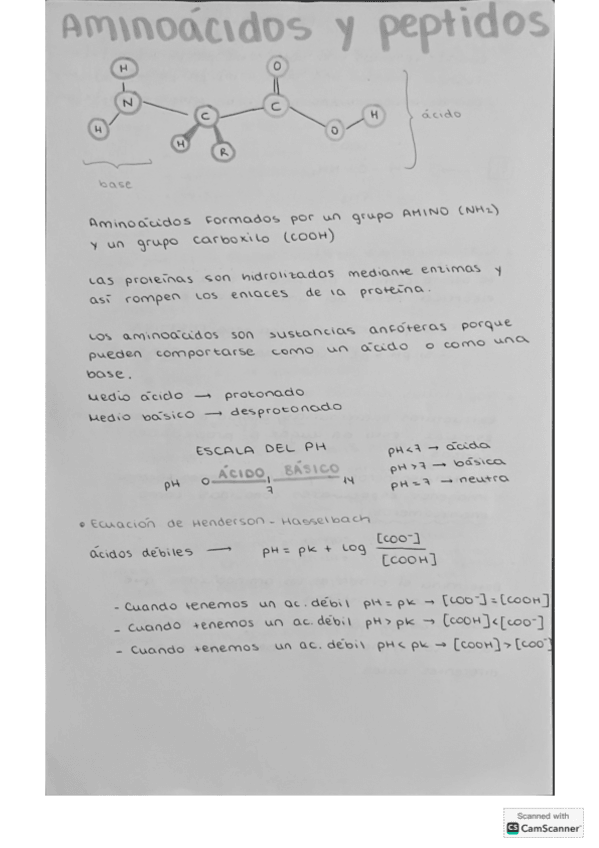 Aminoácidos y peptidos
H
O
N
C
C
H
H
H
O
R
ácido
base
Aminoácidos formados por un grupo AMINO (NH2)
y un grupo carboxilo (COOH)
Las proteínas son hidrolizadas mediante enzimas y
así rompen los enlaces de la proteína.
Los aminoácidos son sustancias anfóteras porque
pueden comportarse como un ácido o como una
base.
Medio ácido → protonado
Medio básico → desprotonado
ESCALA DEL PH
pH<7 → ácida
pH>7 → básica
pH=7 → neutra
pH 0 ÁCIDO 7 BÁSICO 14
• Ecuación de Henderson-Hasselbach
ácidos débiles → pH = pK + log [COO⁻] / [COOH]
- Cuando tenemos un ac. débil pH = pK → [COO⁻] = [COOH]
- Cuando tenemos un ac. débil pH > pK → [COOH] < [COO⁻]
- Cuando tenemos un ac. débil pH < pK → [COOH] > [COO⁻]
Scanned with
CS CamScanner